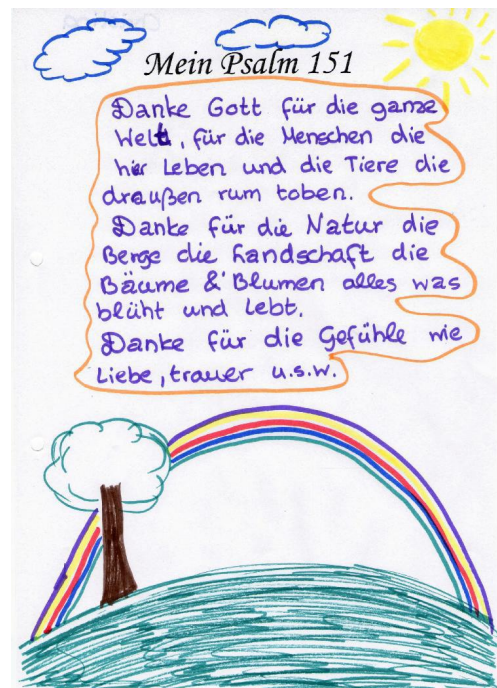 Mein Psalm 151
Danke Gott für die ganze
Welt, für die Menschen die
hier Leben und die Tiere die
draußen rum toben.
Danke für die Natur die
Berge die Landschaft die
Bäume & Blumen alles was
blüht und Lebt.
Danke für die Gefühle wie
Liebe, trauer u.s.w.